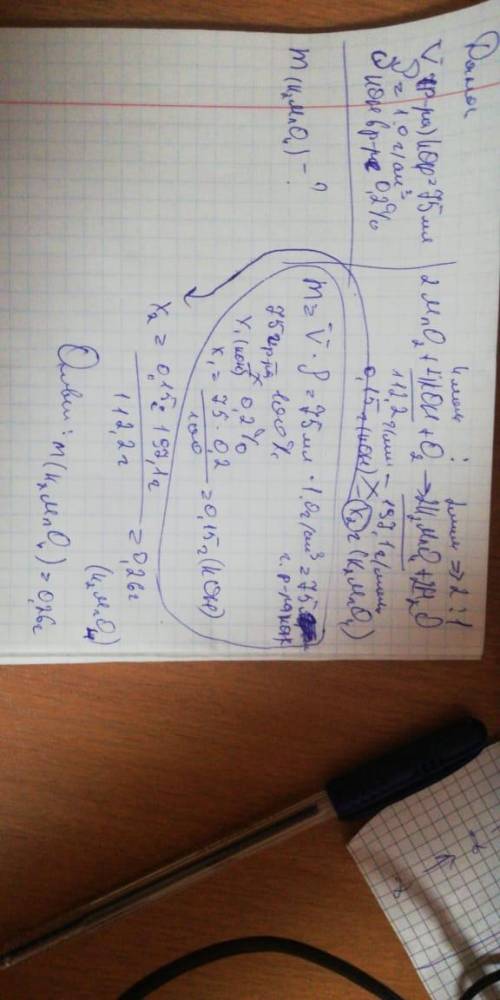 Дано:
V (р-ра) KOH = 75 мл
ρ = 1,0 г/см³
KOH в р-ре 0,2%
m(K₂MnO₄) - ?
4 моль : 2 моль => 2:1
2MnO₂ + 4KOH + O₂ → 2K₂MnO₄ + 2H₂O
112,2 г/моль – 197,1 г/моль
0,15 г (KOH) – x₂ г (K₂MnO₄)
m = V · ρ = 75 мл · 1,0 г/см³ = 75
г. р-ра KOH
75 г р-ра 100%
x₁(KOH) 0,2%
x₁ = 75 · 0,2 / 100 = 0,15 г (KOH)
x₂ = 0,15 г · 197,1 г / 112,2 г = 0,26 г
(K₂MnO₄)
Ответ: m(K₂MnO₄) = 0,26 г